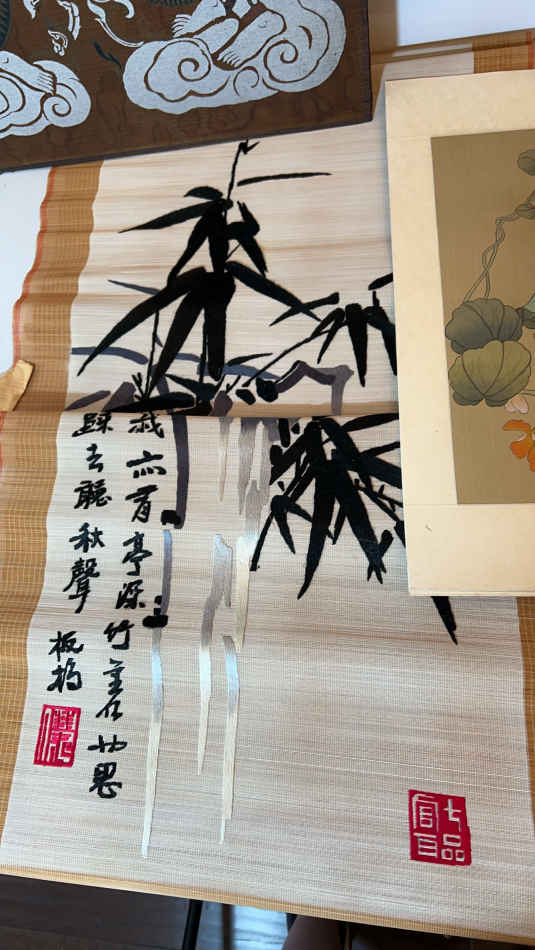 我亦有亭深竹裏也思
歸去聽秋聲
板橋
七品官耳